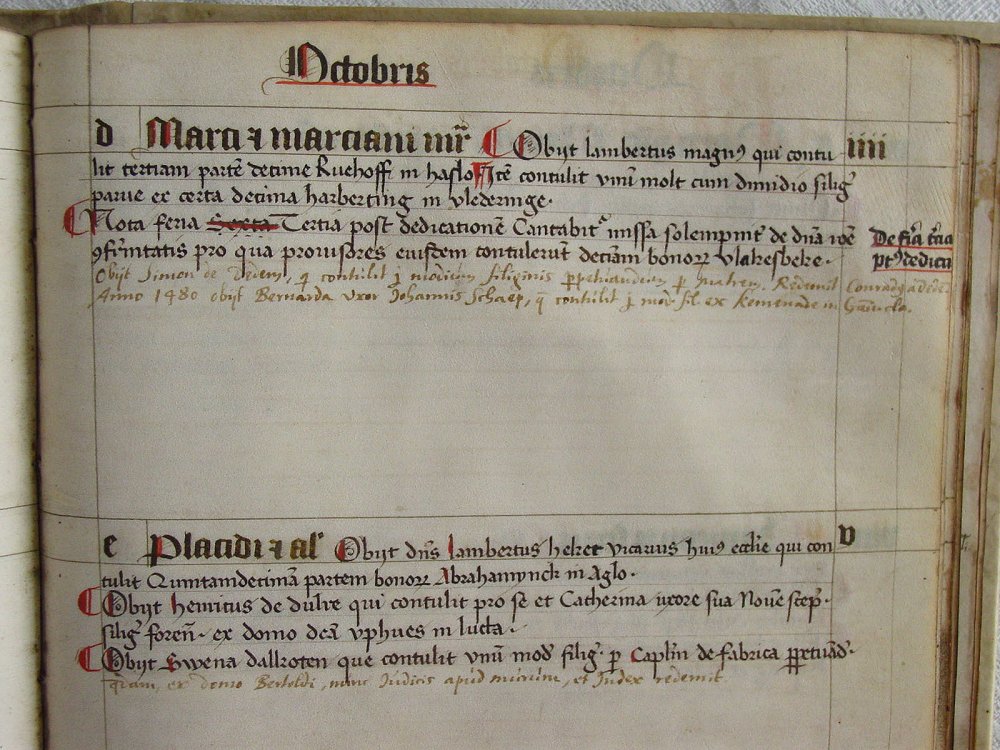 Octobris
d Marci ⁊ marciani mr̃ Obijt lambertus magnꝰ qui contu iiii
lit tertiam partẽ decime Ruehoff in haslo Itẽ contulit vnũ molt cum dimidio silig̃
parue ex certa decima harberting in vlederinge.
Nota feria Sexta Tertia post dedicationẽ Cantabitᷣ missa solempnit̃ de dñã De fia tcia
ꝯfr̃nitatis pro qua prouisores eiusdem contulerut decimã bonorꝝ vlakesbeke. pꝰ dedica
Obijt Simon de contulit j modium siliginis
Anno 1480 obijt Bernarda vxor Johannis Schaep, q̃ contulit j mod sil ex Kemenade in
e Placidi ⁊ al̃ Obijt dñs lambertus heket vicarius huiꝰ ecclie qui con v
tulit Quintamdecimã partem bonorꝝ Abrahamynck in Aglo.
Obijt henricus de dulre qui contulit pro se et Catherina uxore sua Nouẽ scep̃.
silig̃ foren̄. ex domo dcã vphues in lutta.
Obijt Swena dalkroten que contulit vnũ mod̃ silig̃. ꝑ Caplin̄ de fabrica ꝑpetuãd.
ex domo Bertoldi, nunc Judicis apud murum, et Judex redemit